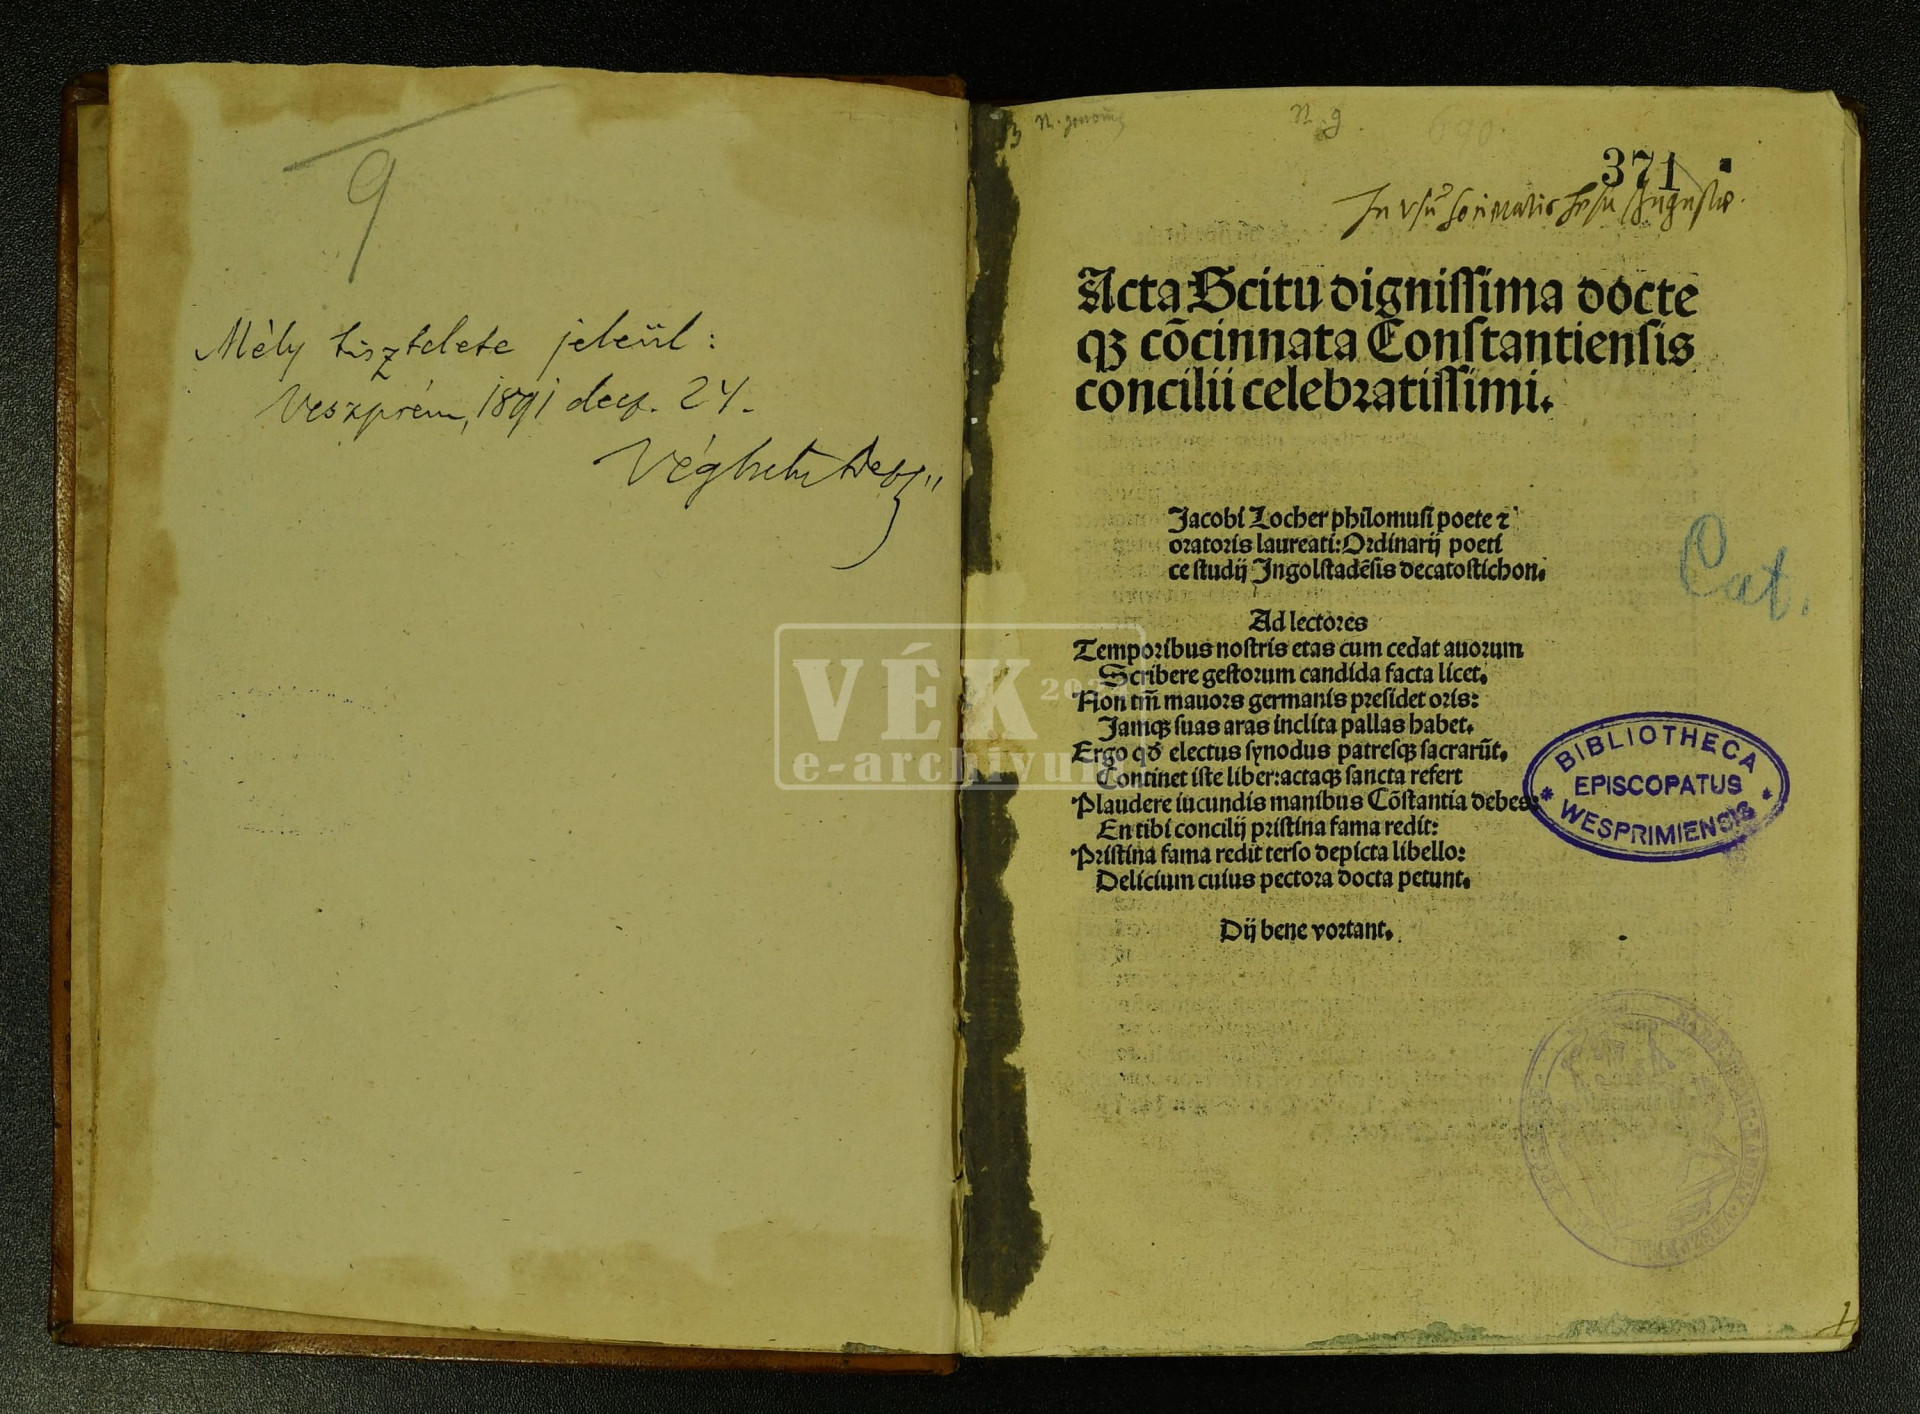 9
Mély tisztelete jeléül:
Veszprém, 1891 decz. 24.
N. 9.
690.
371
In vsū Societatis Jesu Augustæ.
Acta Scitu digniſſima docte
qꝫ cōcinnata Conſtantienſis
concilii celebratiſſimi.
Jacobi Locher philomuſi poete ⁊
oratoris laureati: Ordinarij poeti
ce ſtudij Ingolſtadēſis decatoſtichon.
Cat.
Ad lectores
Temporibus noſtris etas cum cedat auorum
Scribere geſtorum candida facta licet.
Non tm̄ mauors germanis preſidet oris:
Jamqꝫ ſuas aras inclita pallas habet.
Ergo qd̄ electus ſynodus patreſqꝫ ſacrarūt.
Continet iſte liber: actaqꝫ ſancta refert
Plaudere iucundis manibus Cōſtantia debes:
En tibi concilij priſtina fama redit:
Priſtina fama redit terſo depicta libello:
Delicium cuius pectora docta petunt.
Dij bene vortant.
BIBLIOTHECA
EPISCOPATUS
* WESPRIMIENSIS *
VÉK
e-archivum
1